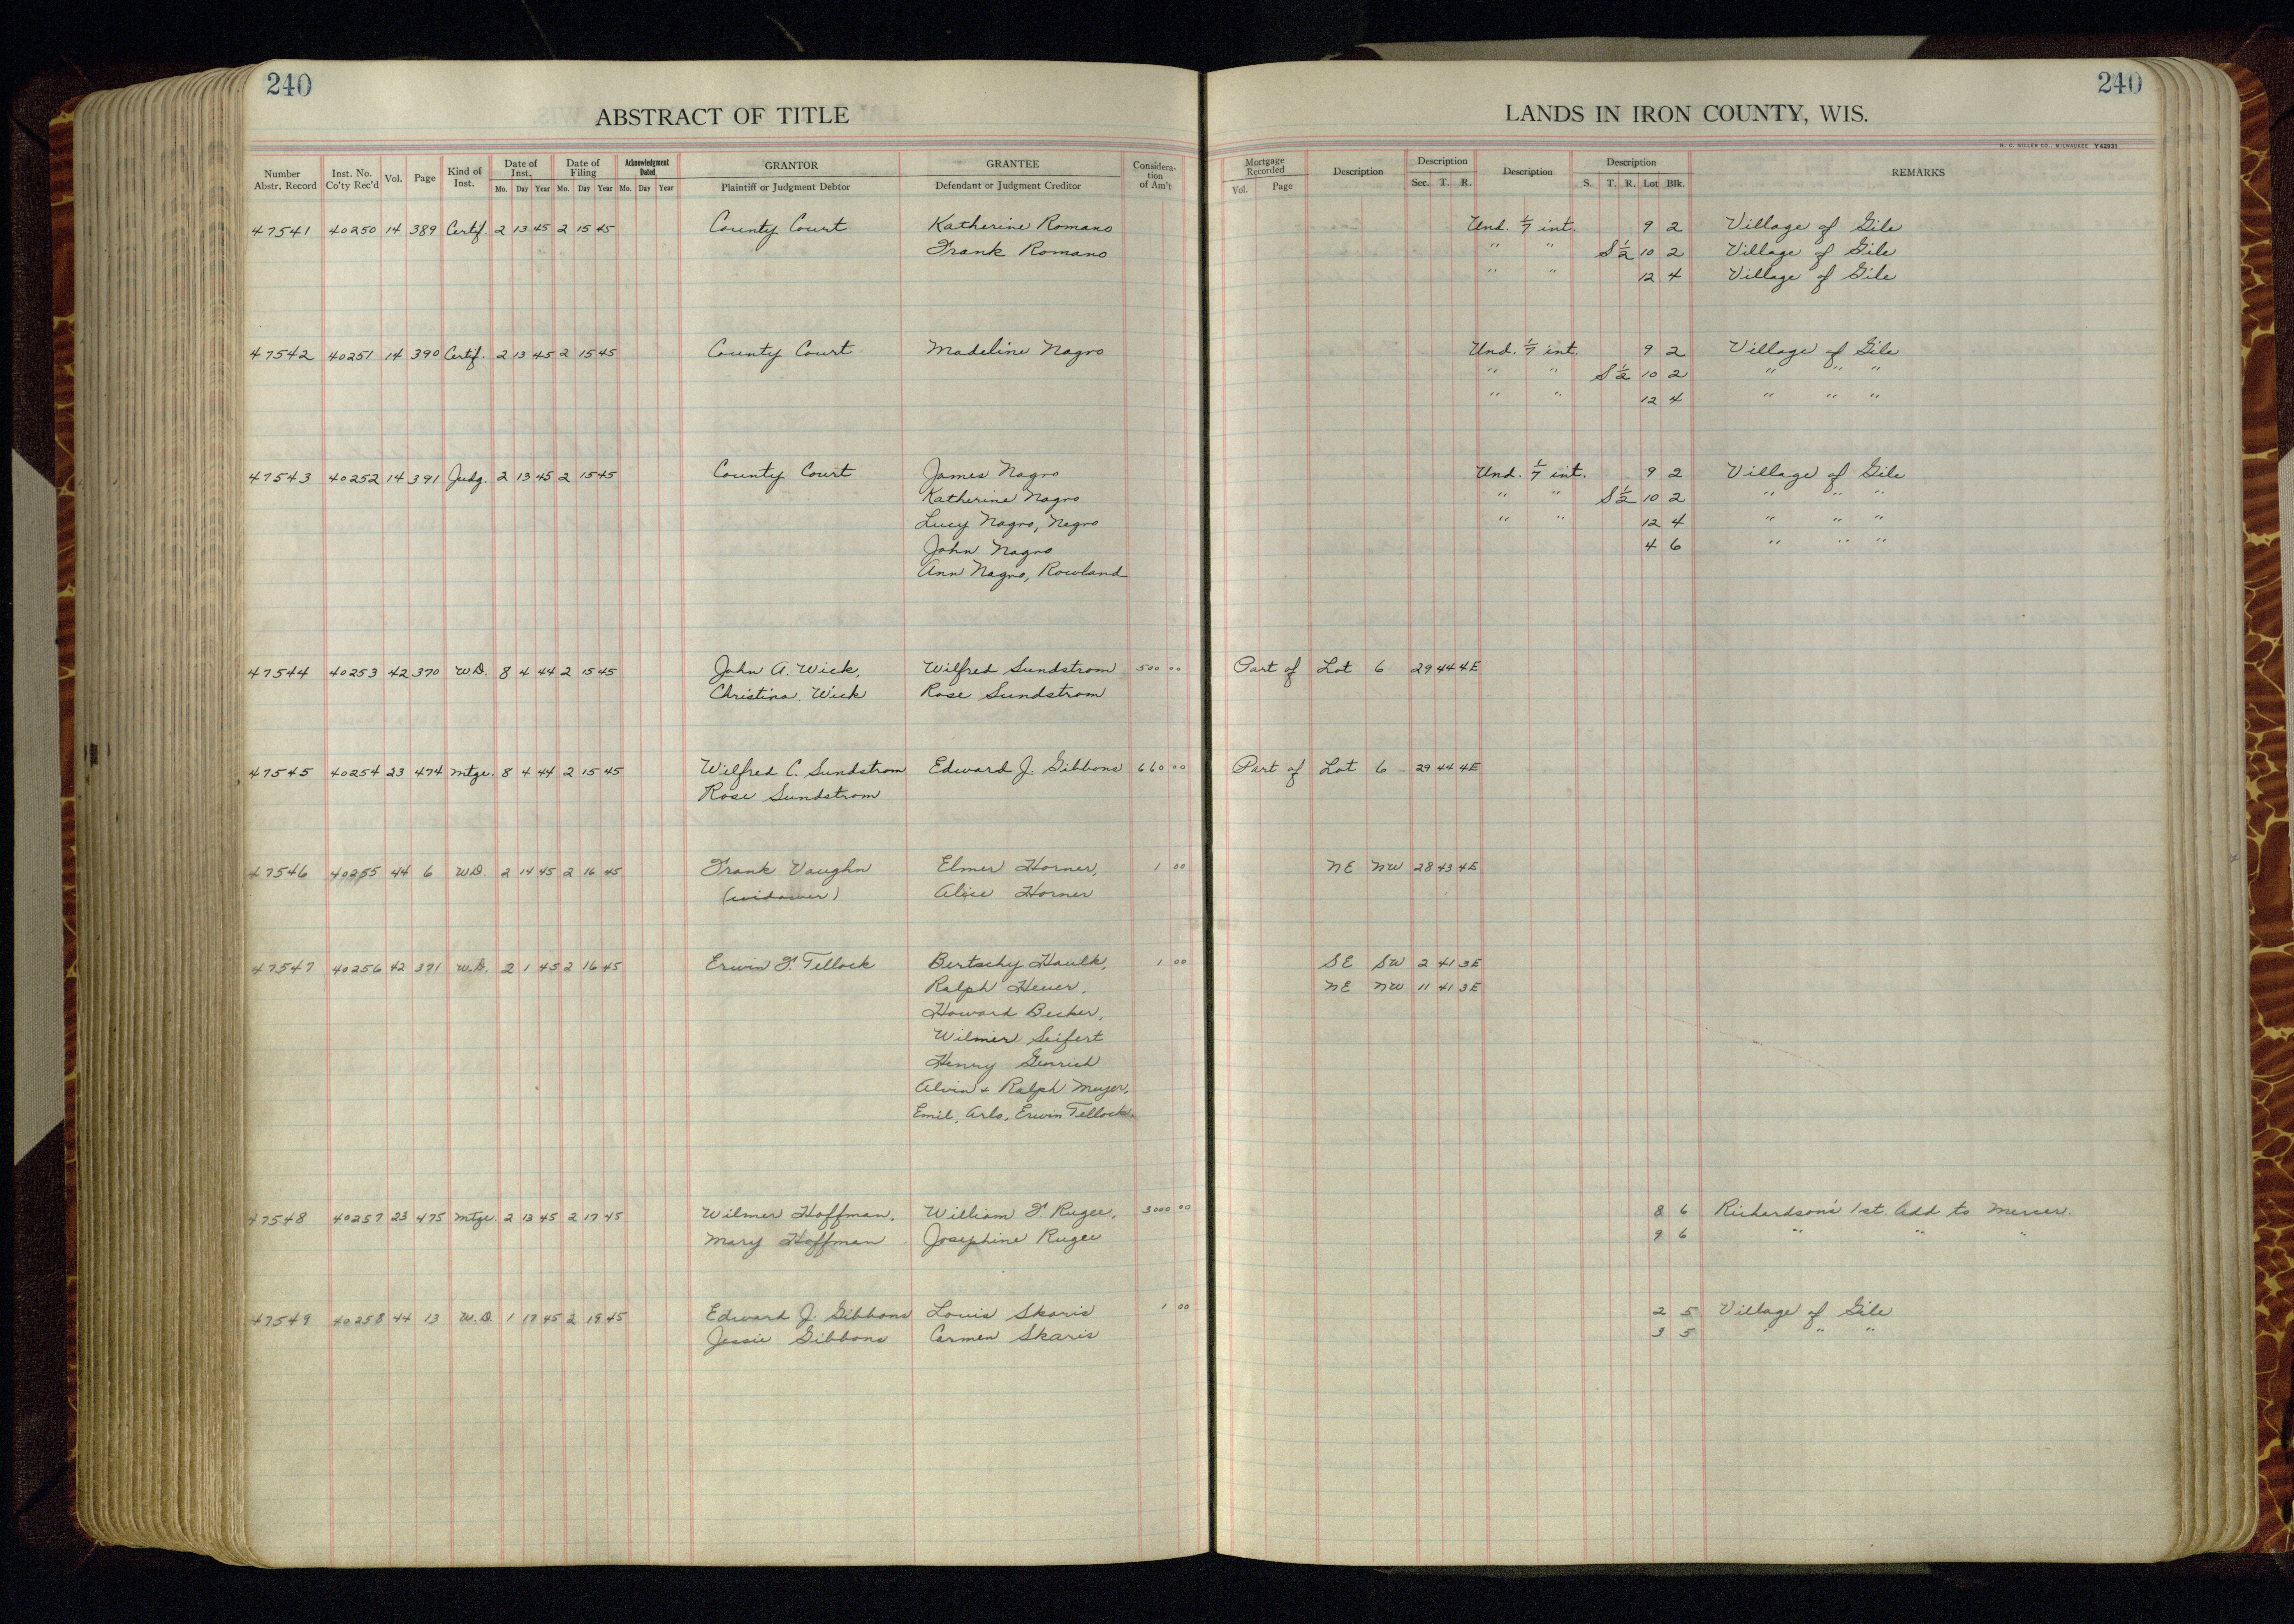 240 240
ABSTRACT OF TITLE LANDS IN IRON COUNTY, WIS.
H. C. MILLER CO., MILWAUKEE Y42931
Number Abstr. Record Inst. No. Co'ty Rec'd Vol. Page Kind of Inst. Date of Inst. Mo. Day Year Date of Filing Mo. Day Year Acknowledgment Dated Mo. Day Year GRANTOR Plaintiff or Judgment Debtor GRANTEE Defendant or Judgment Creditor Consideration of Am't Mortgage Recorded Vol. Page Description Description Sec. T. R. Description Description S. T. R. Lot Blk. REMARKS
47541 40250 14 389 Certf. 2 13 45 2 15 45 County Court Katherine Romano Und. 1/7 int. 9 2 Village of Gile
Frank Romano " " S 1/2 10 2 Village of Gile
" " 12 4 Village of Gile
47542 40251 14 390 Certf. 2 13 45 2 15 45 County Court Madeline Nagro Und. 1/7 int. 9 2 Village of Gile
" " S 1/2 10 2 " " "
" " 12 4 " " "
47543 40252 14 391 Judg. 2 13 45 2 15 45 County Court James Nagro Und. 1/7 int. 9 2 Village of Gile
Katherine Nagro " " S 1/2 10 2 " " "
Lucy Nagro, Negro " " 12 4 " " "
John Nagro 4 6 " " "
Ann Nagro, Rowland
47544 40253 42 370 W.D. 8 4 44 2 15 45 John A. Wick, Wilfred Sundstrom 500 00 Part of Lot 6 29 44 4E
Christina Wick Rose Sundstrom
47545 40254 23 474 Mtge. 8 4 44 2 15 45 Wilfred C. Sundstrom Edward J. Gibbons 660 00 Part of Lot 6 29 44 4E
Rose Sundstrom
47546 40255 44 6 W.D. 2 14 45 2 16 45 Frank Vaughn Elmer Horner, 1 00 NE NW 28 43 4E
(widower) Alice Horner
47547 40256 42 371 W.D. 2 1 45 2 16 45 Erwin F. Tellock Bertschy Haulk, 1 00 SE SW 2 41 3E
Ralph Heuer, NE NW 11 41 3E
Howard Becker,
Wilmer Seifert
Henry Genrich
Alvin + Ralph Meyer,
Emil, Arlo, Erwin Tellock.
47548 40257 23 475 Mtge. 2 13 45 2 17 45 Wilmer Hoffman, William F. Rugee, 3000 00 8 6 Richardson's 1st. Add to Mercer.
Mary Hoffman Josephine Rugee 9 6 " " "
47549 40258 44 13 W.D. 1 17 45 2 19 45 Edward J. Gibbons Louis Skaris 1 00 2 5 Village of Gile
Jessie Gibbons Carmen Skaris 3 5 " " "